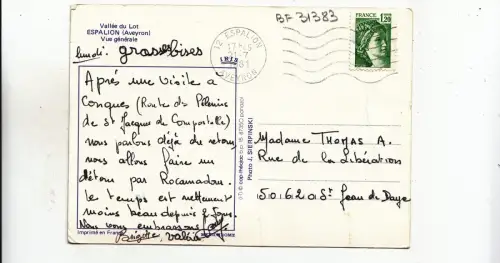 Vallée du Lot
ESPALION (Aveyron)
Vue générale
BF 31383
lundi.
grosses bises
12 ESPALION
AVEYRON
FRANCE
1,20
Après une visite à
Conques (Route du Pèlerinage
de St Jacques de Compostelle)
nous parlons déjà du retour,
nous allons faire un
détour par Rocamadour.
Le temps est nettement
moins beau depuis 2 jours.
Nous vous embrassons
Brigitte Valérie
Imprimé en France
Photo J. SIERPINSKI
Madame THOMAS A.
Rue de la Libération
50620 St Jean de Daye